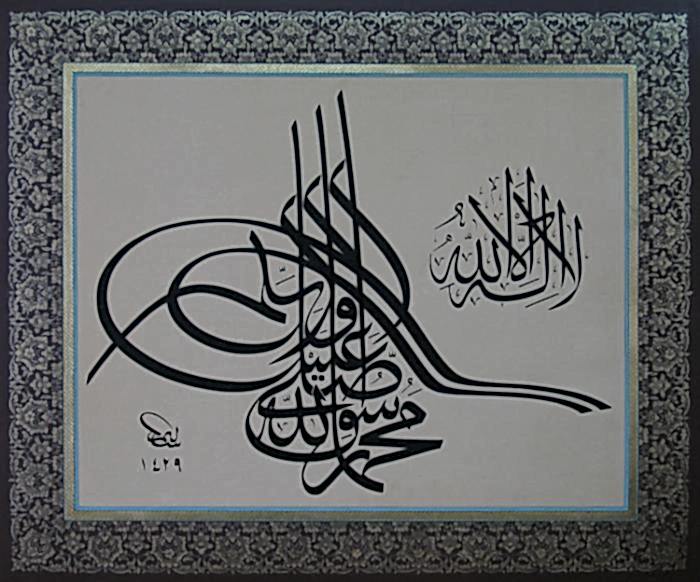 لا إله إلا الله
محمد رسول الله صلى الله عليه وسلم
١٤٢٩